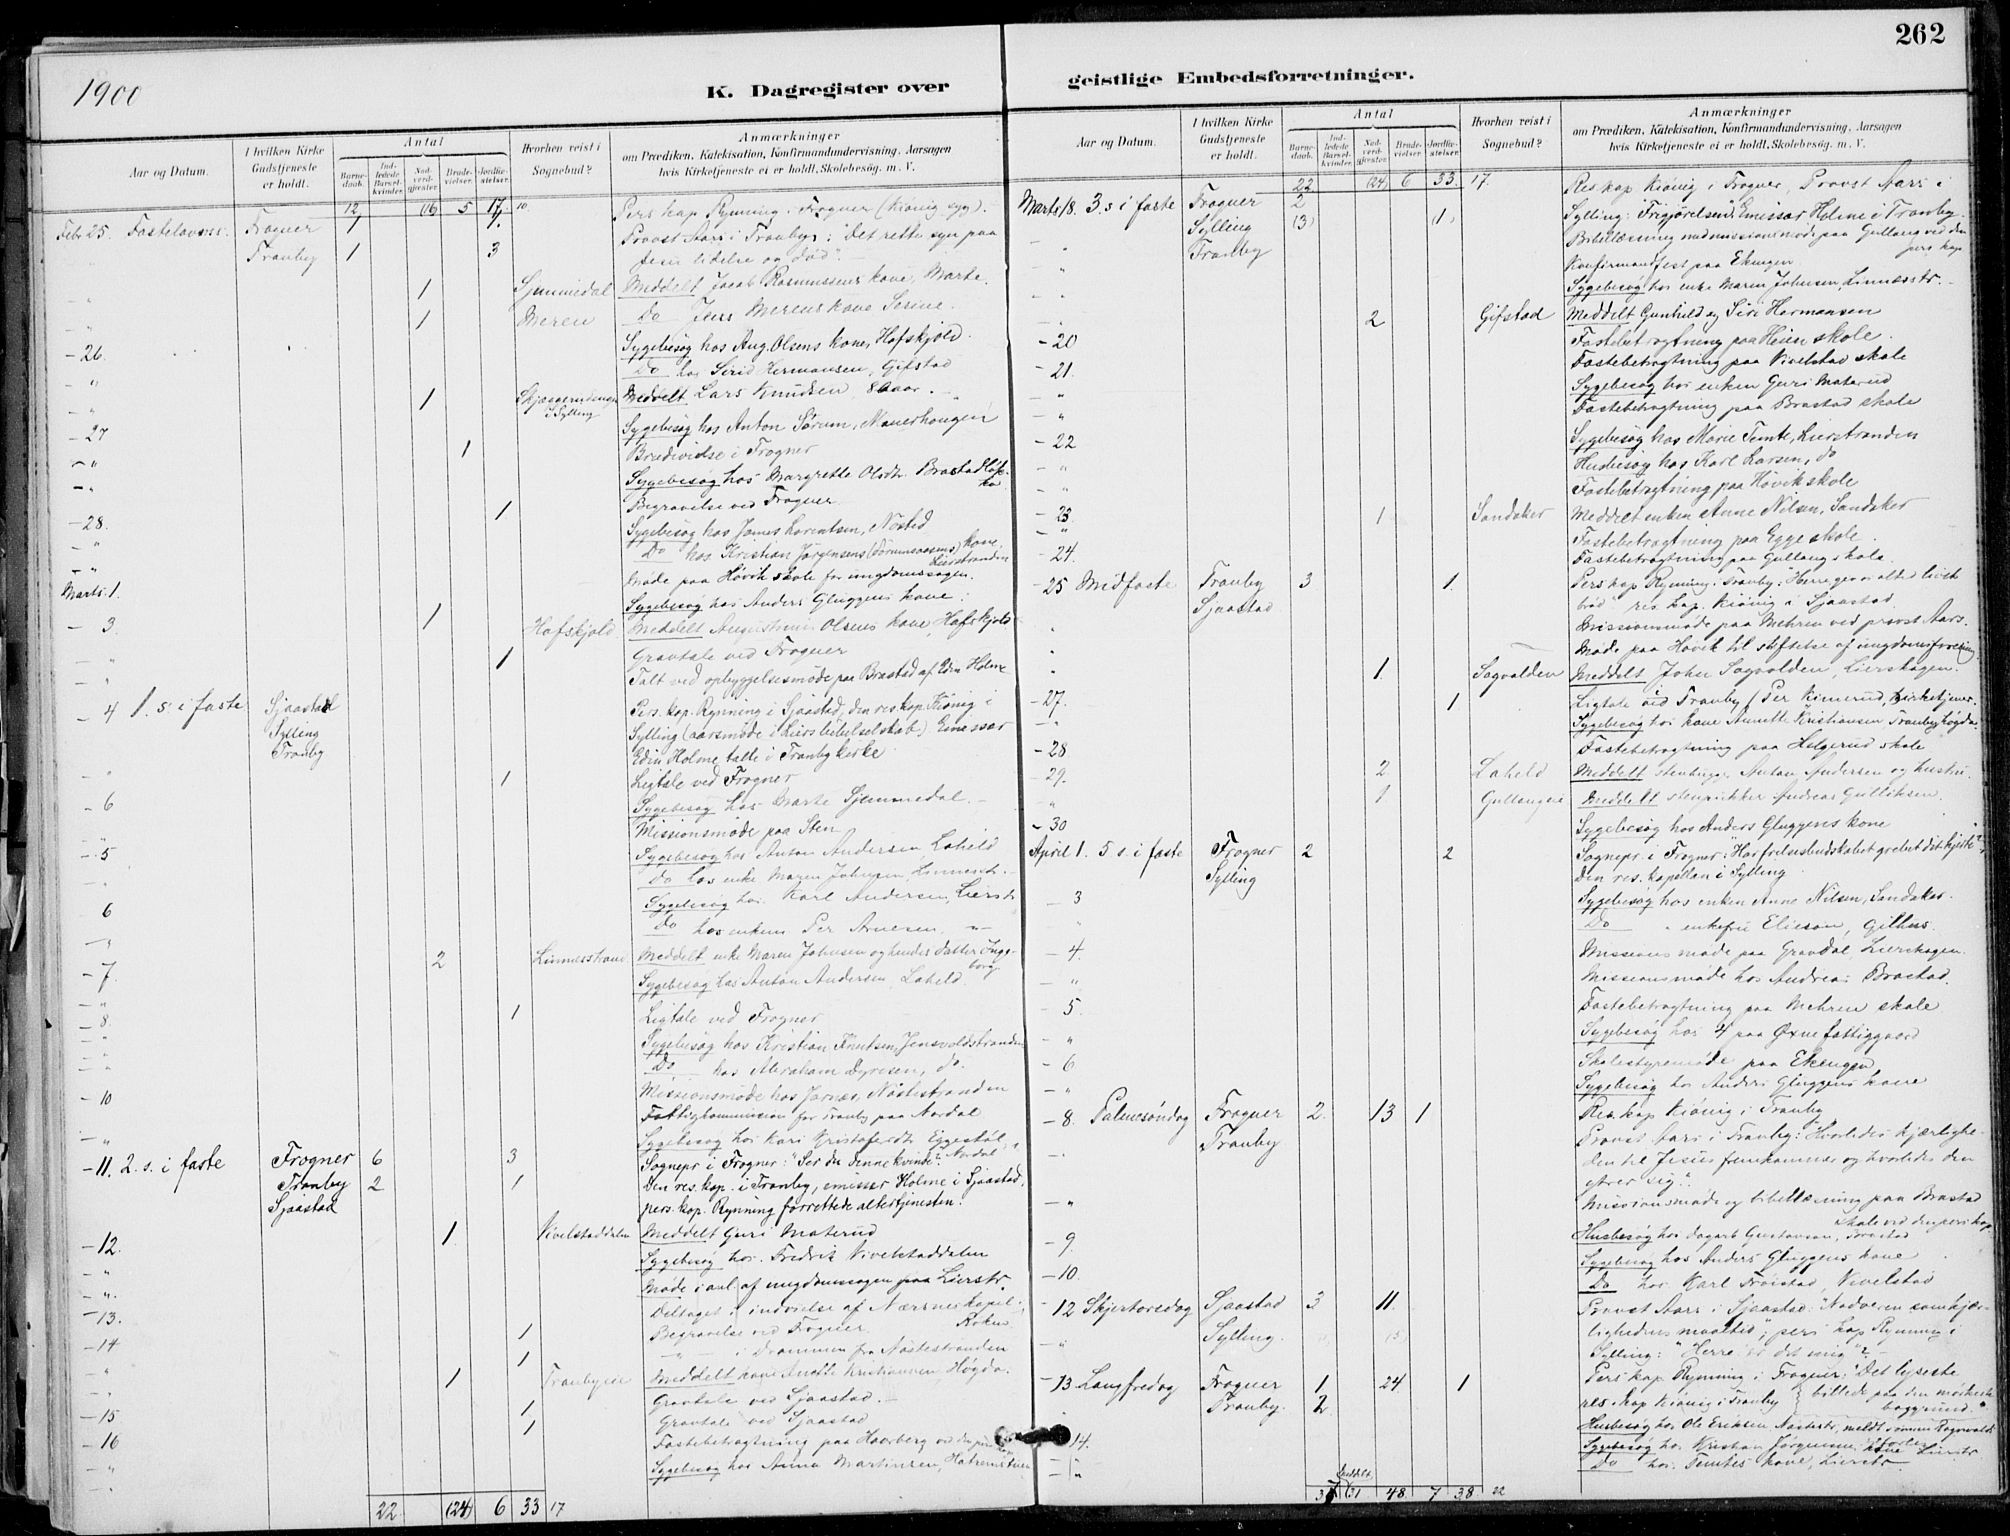 262
1900
K. Dagregister over
geistlige Embedsforretninger.
Aar og Datum.
I hvilken Kirke Gudstjeneste er holdt.
Antal
Barnedaab.
Indledede Barselkvinder.
Nadverdgjester.
Brudevielser.
Jordfæstelser.
Hvorhen reist i Sognebud?
Anmærkninger
om Prædiken, Katekisation, Konfirmandundervisning, Aarsagen
hvis Kirketjeneste ei er holdt, Skolebesøg. m. V.
12 (16) 5 17 10
Febr 25. Fastelavnss. Frogner 1 1. Pers kap Rynning i Frogner (Kiönig syg).
Tranby 1 3 Provst Aars i Tranby: "Det rette syn paa
Jesu lidelse og död".
1 Sjemmedal Meddelt Jacob Rasmussens kone, Marte.
1 Meren Do Jens Merens kone Serine.
- 26. Sygebesøg hos Aug. Olsens kone, Hofskjold.
" Do hos Sirid Hermansen, Gifstad
" 1 Sylling Meddelt Lars Knudsen 80 aar.
- 27 Sygebesøg hos Anton Sörum,
- " 1 Brudevielse i Frogner
- " Sygebesøg hos Margrethe Olsdr. Brastad
1 Begravelse ved Frogner
- 28. Sygebesøg hos James Lorentsen, Nøsted
- " Do hos Kristian Jørgensens kone, Lierstranden
- " Møde paa Høvik skole for ungdomssagen.
Marts 1. Sygebesøg hos Anders Gluggens kone.
- 3. 1 Hofskjold Meddelt Olsens kone, Hofskjold
" 1 Gravtale ved Frogner
" Talt ved opbyggelsesmøde paa Brastad af Edin Holme
- 4 1. s. i faste Sjaastad Pers. kap. Rynning i Sjaastad, den res. kap. Kiönig i
Sylling Sylling (aarsmøde i Liers bibelselskab) Emissær
Tranby Edin Holme talte i Tranby kirke
1 Ligtale ved Frogner
- 6 Sygebesøg hos Marte Sjemmedal.
Missionsmøde paa Sten
- 5 Sygebesøg hos Anton Andersen Laheld
Do hos enke Maren Johnsen, Linnesstr.
Sygebesøg hos Karl Andersen, Lierstr
6 Do hos enken Per Arnesen. "
- 7 2 Linnesstrand Meddelt enke Maren Johnsen og hendes datter Ingeborg
Sygebesøg hos Anton Andersen, Laheld.
" 1 Ligtale ved Frogner
- 8. Sygebesøg hos Kristian Knutsen, Jensvoldstranden
" Do hos Abraham Dyresen, do.
Missionsmøde hos Jarnæs, Nøstestranden
- 10 Fattigkommission for Tranby paa Nordal
- " Sygebesøg hos Kari Kristofersdt Eggestøl, Nordal
- 11. 2. s. i faste Frogner 6 3 Sognepr i Frogner: "Ser du denne kvinde?"
Tranby 2 1 Den res. kap. i Tranby, emissær Holme i Sjaastad,
Sjaastad pers. kap. Rynning forrettede altertjenesten.
- 12. 1 Vivelstaddalen Meddelt Guri Materud
- " Sygebesøg hos Fredrik Vivelstaddalen
- " Møde i anl. af ungdomssagen paa Lierstr
- 13. Deltaget i indvielse af Nærsnes kapel, Røken
- 14 1 Begravelse ved Frogner
" 1 - " - i Drammen fra Nøstestranden
" 1 Tranbyeie Meddelt kone Anette Kristiansen Høgda.
- 15 1 Gravtale ved Sjaastad.
1 Gravtale ved Sjaastad
- 16 Fastebetragtning paa Haarberg ved den pers kap
- " Sygebesøg hos Anna Martinsen,
22 (24) 6 33 17
22 (24) 6 33. 17.
Marts 18. 3. s. i faste Frogner 2 Res kap Kiönig i Frogner, Provst Aars i
Sylling (3) (1) Sylling: "Frigjørelsen". Emissær Holme i Tranby.
Tranby Bibellæsning med missionsmøde paa Gullaug ved den pers kap
Konfirmandfest paa Ekengen
Sygebesøg hos enke Maren Johnsen, Linnesstr.
2 Gifstad Meddelt Gunhild og Siri Hermansen
- 20 Fastebetragtning paa Heien skole.
- 21. Fastebetragtning paa Vivelstad skole
- " Sygebesøg hos enken Guri Materud
- " Fastebetragtning paa Brastad skole
- 22 Sygebesøg hos Marie Temte, Lierstranden
- " Husbesøg hos Karl Larsen, do
- " Fastebetragtning paa Høvik skole
- 23 1 Sandaker Meddelt enken Anne Nilsen, Sandaker
- " Fastebetragtning paa Egge skole.
- 24. Fastebetragtning paa Gullaug skole.
- 25 Midfaste Tranby 3 1. Pers kap Rynning i Tranby: Herre giv os altid livets
Sjaastad brød res. kap. Kiönig i Sjaastad.
Missionsmøde paa Mehren ved provst Aars.
Møde paa Høvik til stiftelse af ungdomsforening
1 Sogvolden Meddelt Johan Sogvolden, Lierskogen.
- 27. 1 Ligtale ved Tranby (Per Kimerud, kirketjener.
- " Sygebesøg hos kone Annette Kristiansen Tranby, Høgda
- 28 Fastebetragtning paa Helgerud skole
- 29. 2 Laheld Meddelt stenhugger Anton Andersen og hustru.
1 Gullaugeie Meddelt stenpikker Andreas Gulliksen.
- 30 Sygebesøg hos Anders Gluggens kone
April 1. 5 s. i faste Frogner 2 2 Sognepr. i Frogner: "Har frelsesbudskabet grebet dit hjerte?"
Sylling Den res. kapellan i Sylling
- 3 Sygebesøg hos enken Anne Nilsen, Sandaker.
Do " enkefru Elieson, Gilhus.
- 4. Missionsmøde paa Gravdal, Lierskogen.
- " Missionsmøde hos Andreas Brastad.
- 5 Fastebetragtning paa Mehren skole
" Sygebesøg hos 4 paa Øxne fattiggaard
- 6 Skolestyremøde paa Ekengen
- " Sygebesøg hos Anders Gluggens kone
- 8. Palmesøndag Frogner 2. 13 1 Res kap Kiönig i Frogner
Tranby Provst Aars i Tranby: "Hvorledes kjærligheden
til Jesus fremkommer og hvorledes den
ytrer sig".
- " Missionsmøde og bibellæsning paa Brastad skole ved den pers kap.
- 9 Husbesøg hos Dagart Gustavson, Brastad
Sygebesøg hos Anders Gluggens kone
- 10. Do hos Karl Frøistad, Vivelstad
- 12 Skjertorsdag Sjaastad 3 11. Provst Aars i Sjaastad: "Nadveren som kjærlighedens
- " Sylling. (5) maaltid", pers kap Rynning i
Sylling: "Herre er det mig"?
- 13 Langfredag Frogner 1 24. 1 Pers kap Rynning i Frogner: "Det lyseste
Tranby. 2 res. kap Kiönig i Tranby billede paa den mørkeste baggrund."
Husbesøg hos Ole Eriksen Nøstestr, meldt sønnen Ragnvalds
- 14. Sygebesøg hos Kristian Jørgensens kone Lierstr
- " Do hos Temtes kone, Lierstr
37 (31 48 7 38 22